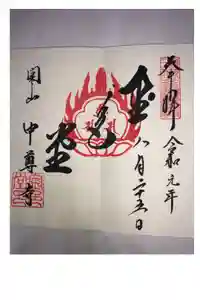 奉拝 令和元年
八月二十五日
金色堂
関山 中尊寺